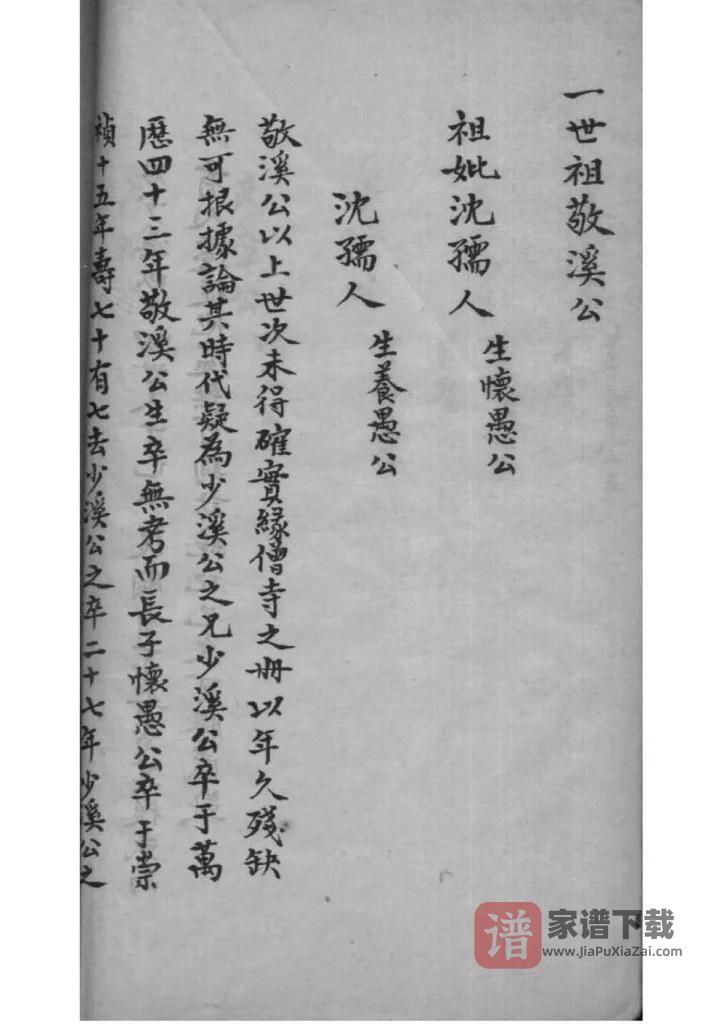 一世祖敬溪公
祖妣沈孺人 生懷愚公
沈孺人 生養愚公
敬溪公以上世次未得確實緣僧寺之冊以年久殘缺
無可根據論其時代疑為少溪公之兄少溪公卒于萬
歷四十三年敬溪公生卒無考而長子懷愚公卒于崇
禎十五年壽七十有七去少溪公之卒二十七年少溪公之
谱 家谱下载
www.JiaPuXiaZai.com